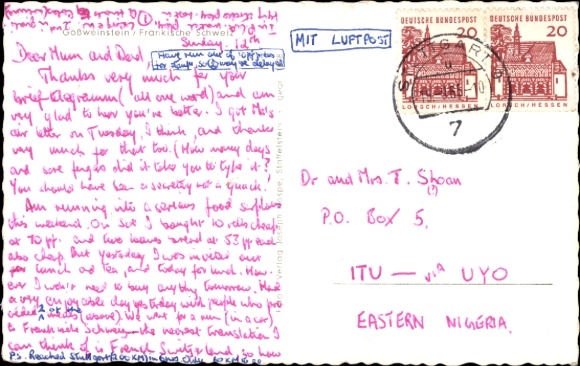 Gößweinstein / Fränkische Schweiz
Sunday, 12th
Dear Mum and Dad,
Have run out of
so may be delayed
Thanks very much for your
brief telegramm (all one word) and am
very glad to hear you're better. I got Ma's
air letter on Tuesday, I think, and thanks
very much for that too (How many days
and sore fingers did it take you to type it?
You should have been a secretary not a quack.)
Am running into a serious food surplus
this weekend. On Sat I bought 10 rolls cheap
at 70 pf. and two loaves instead at 53 pf each
also cheap. But yesterday I was invited out
for lunch and tea, and today for lunch. How-
ever I won't need to buy any tomorrow. Had
a very enjoyable day yesterday with people who pro
vided 2 of the meals (above). We went for a run (in a car)
to Frankische Schweiz - the nearest translation I
can think of is French Switzerland, so now
PS. Reached Stuttgart (200 KM) in Only
MIT LUFTPOST
DEUTSCHE BUNDESPOST
20
LORSCH/HESSEN
DEUTSCHE BUNDESPOST
20
LORSCH/HESSEN
STUTTGART
7
Dr and Mrs. T. Sloan
P.O. Box 5,
ITU - via UYO
EASTERN NIGERIA.